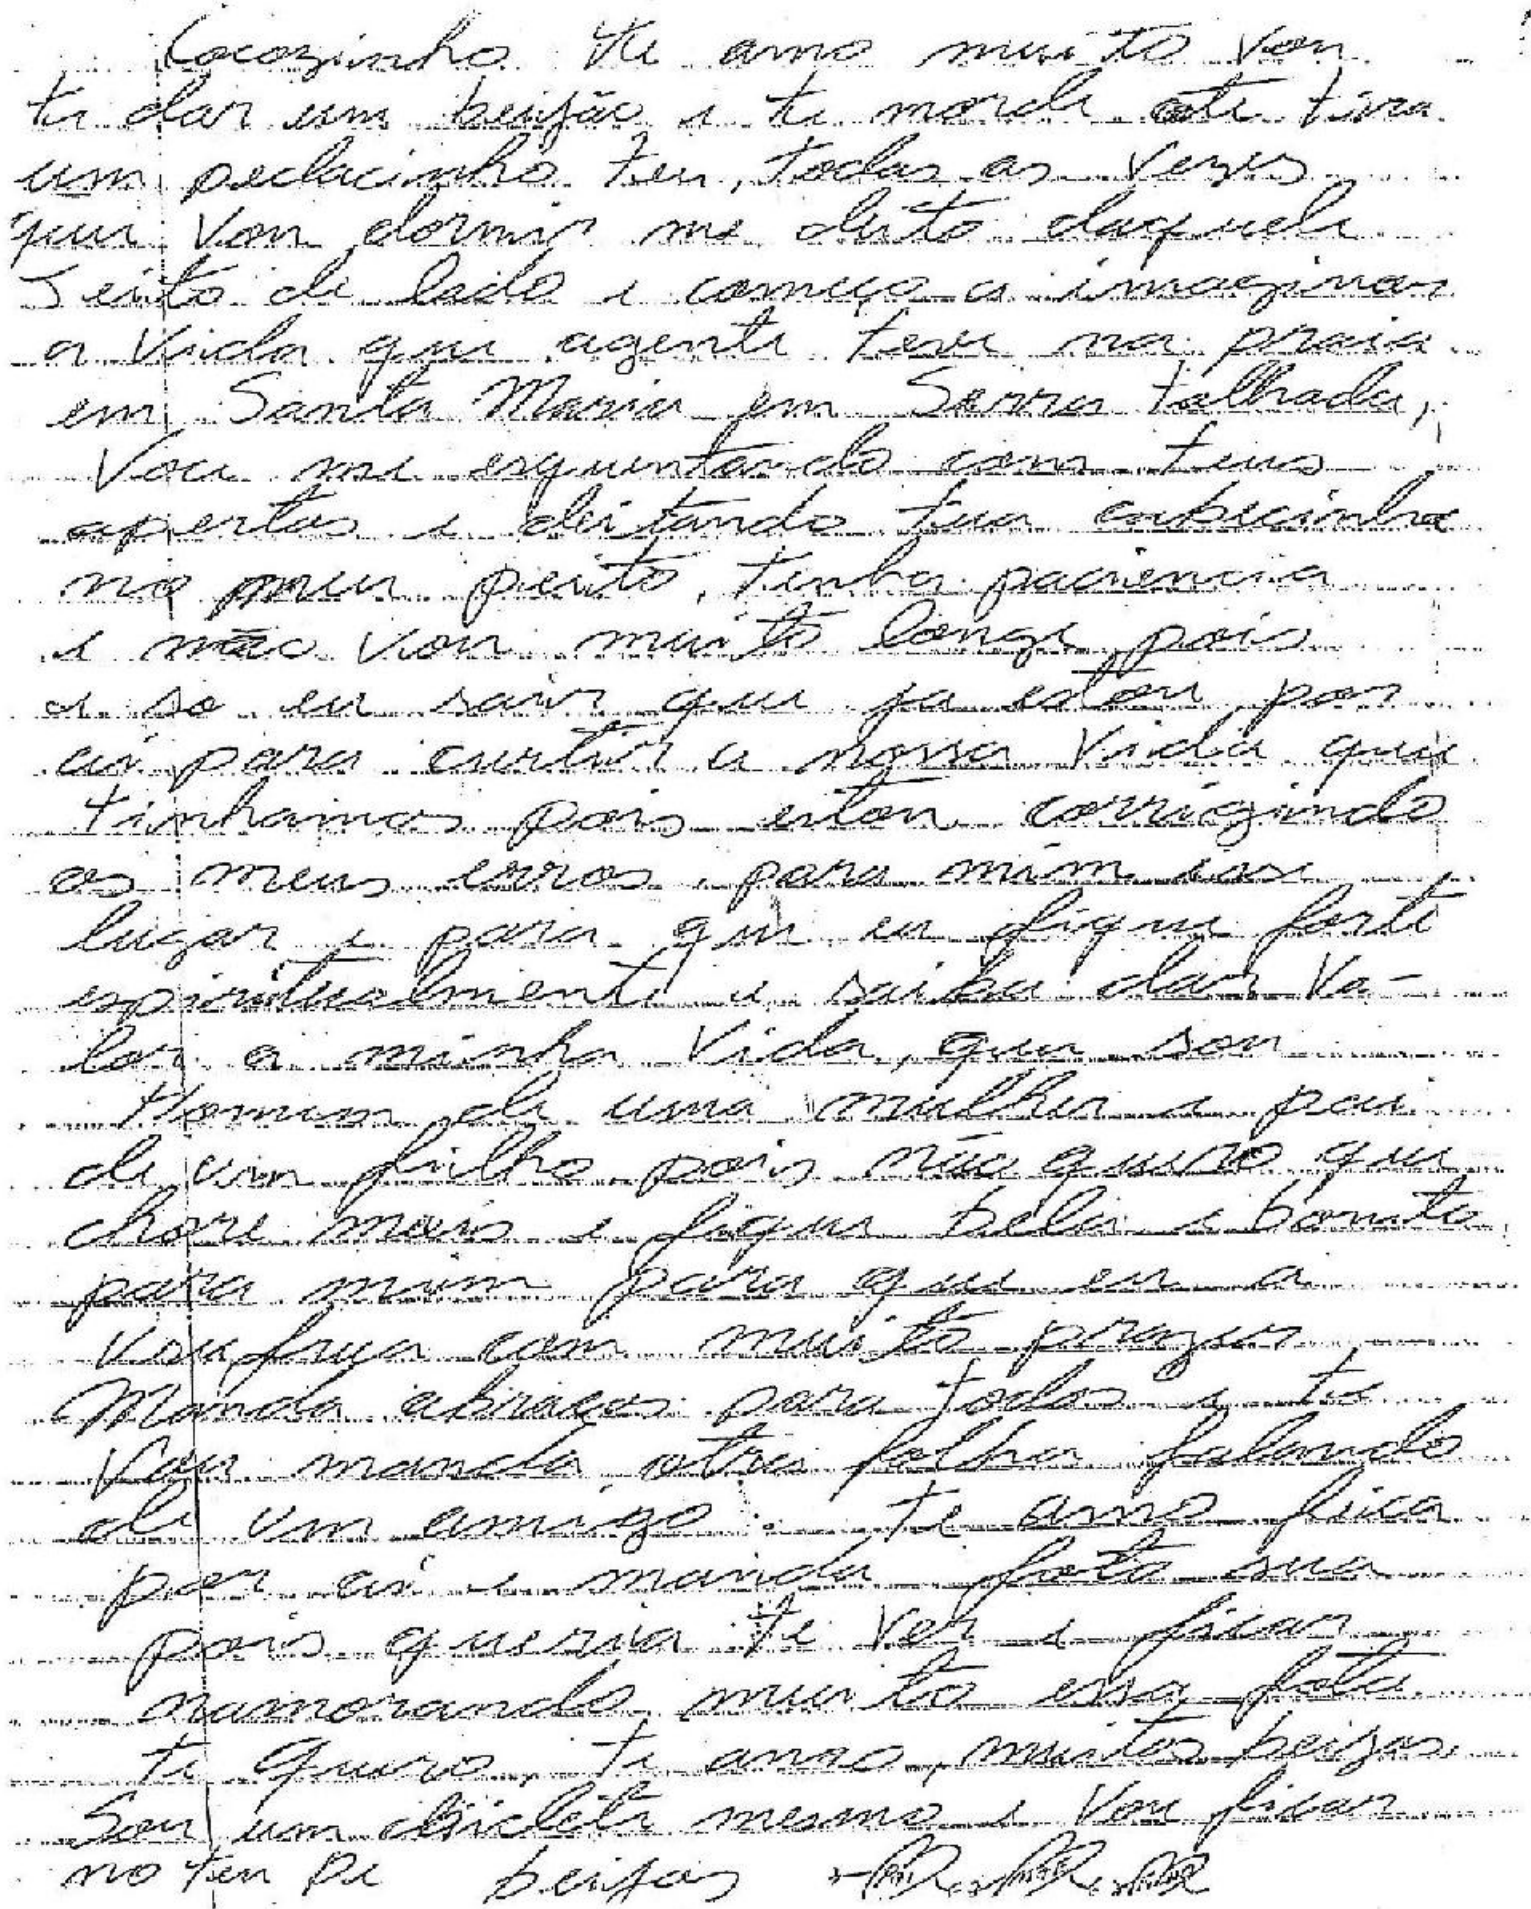 Cocozinho te amo muito vou
te dar um beijão e te morde ate tira
um pedacinho teu, todas as vezes
que vou dormir me deito daquele
Jeito de lado e começo a imaginar
a vida que agente teve na praia
em Santa Maria em Serra talhada,
voce me esquentando com teus
apertos e deitando tua cabecinha
no meu peito, tenha paciencia
e não vou muito longe pois
e so eu sair que ja estou por
ai para curtir a nossa vida que
tinhamos pois estou corrigindo
os meus erros para mim esse
lugar e para que eu fique forte
espiritualmente e saiba dar va-
lor a minha vida, que sou
Homem de uma mulher e pai
de um filho pois não quero que
chore mais e fique bela e bonita
para mim para que eu a
usufrua com muito prazer
Manda abraços para todos e te
vou manda otra folha falando
de um amigo. te amo fica
por ai e manda foto sua
pois queria te ver e ficar
namorando muito essa foto
te quero, te amo, muitos beijos
Sou um chiclete mesmo e vou ficar
no teu Pe beijos